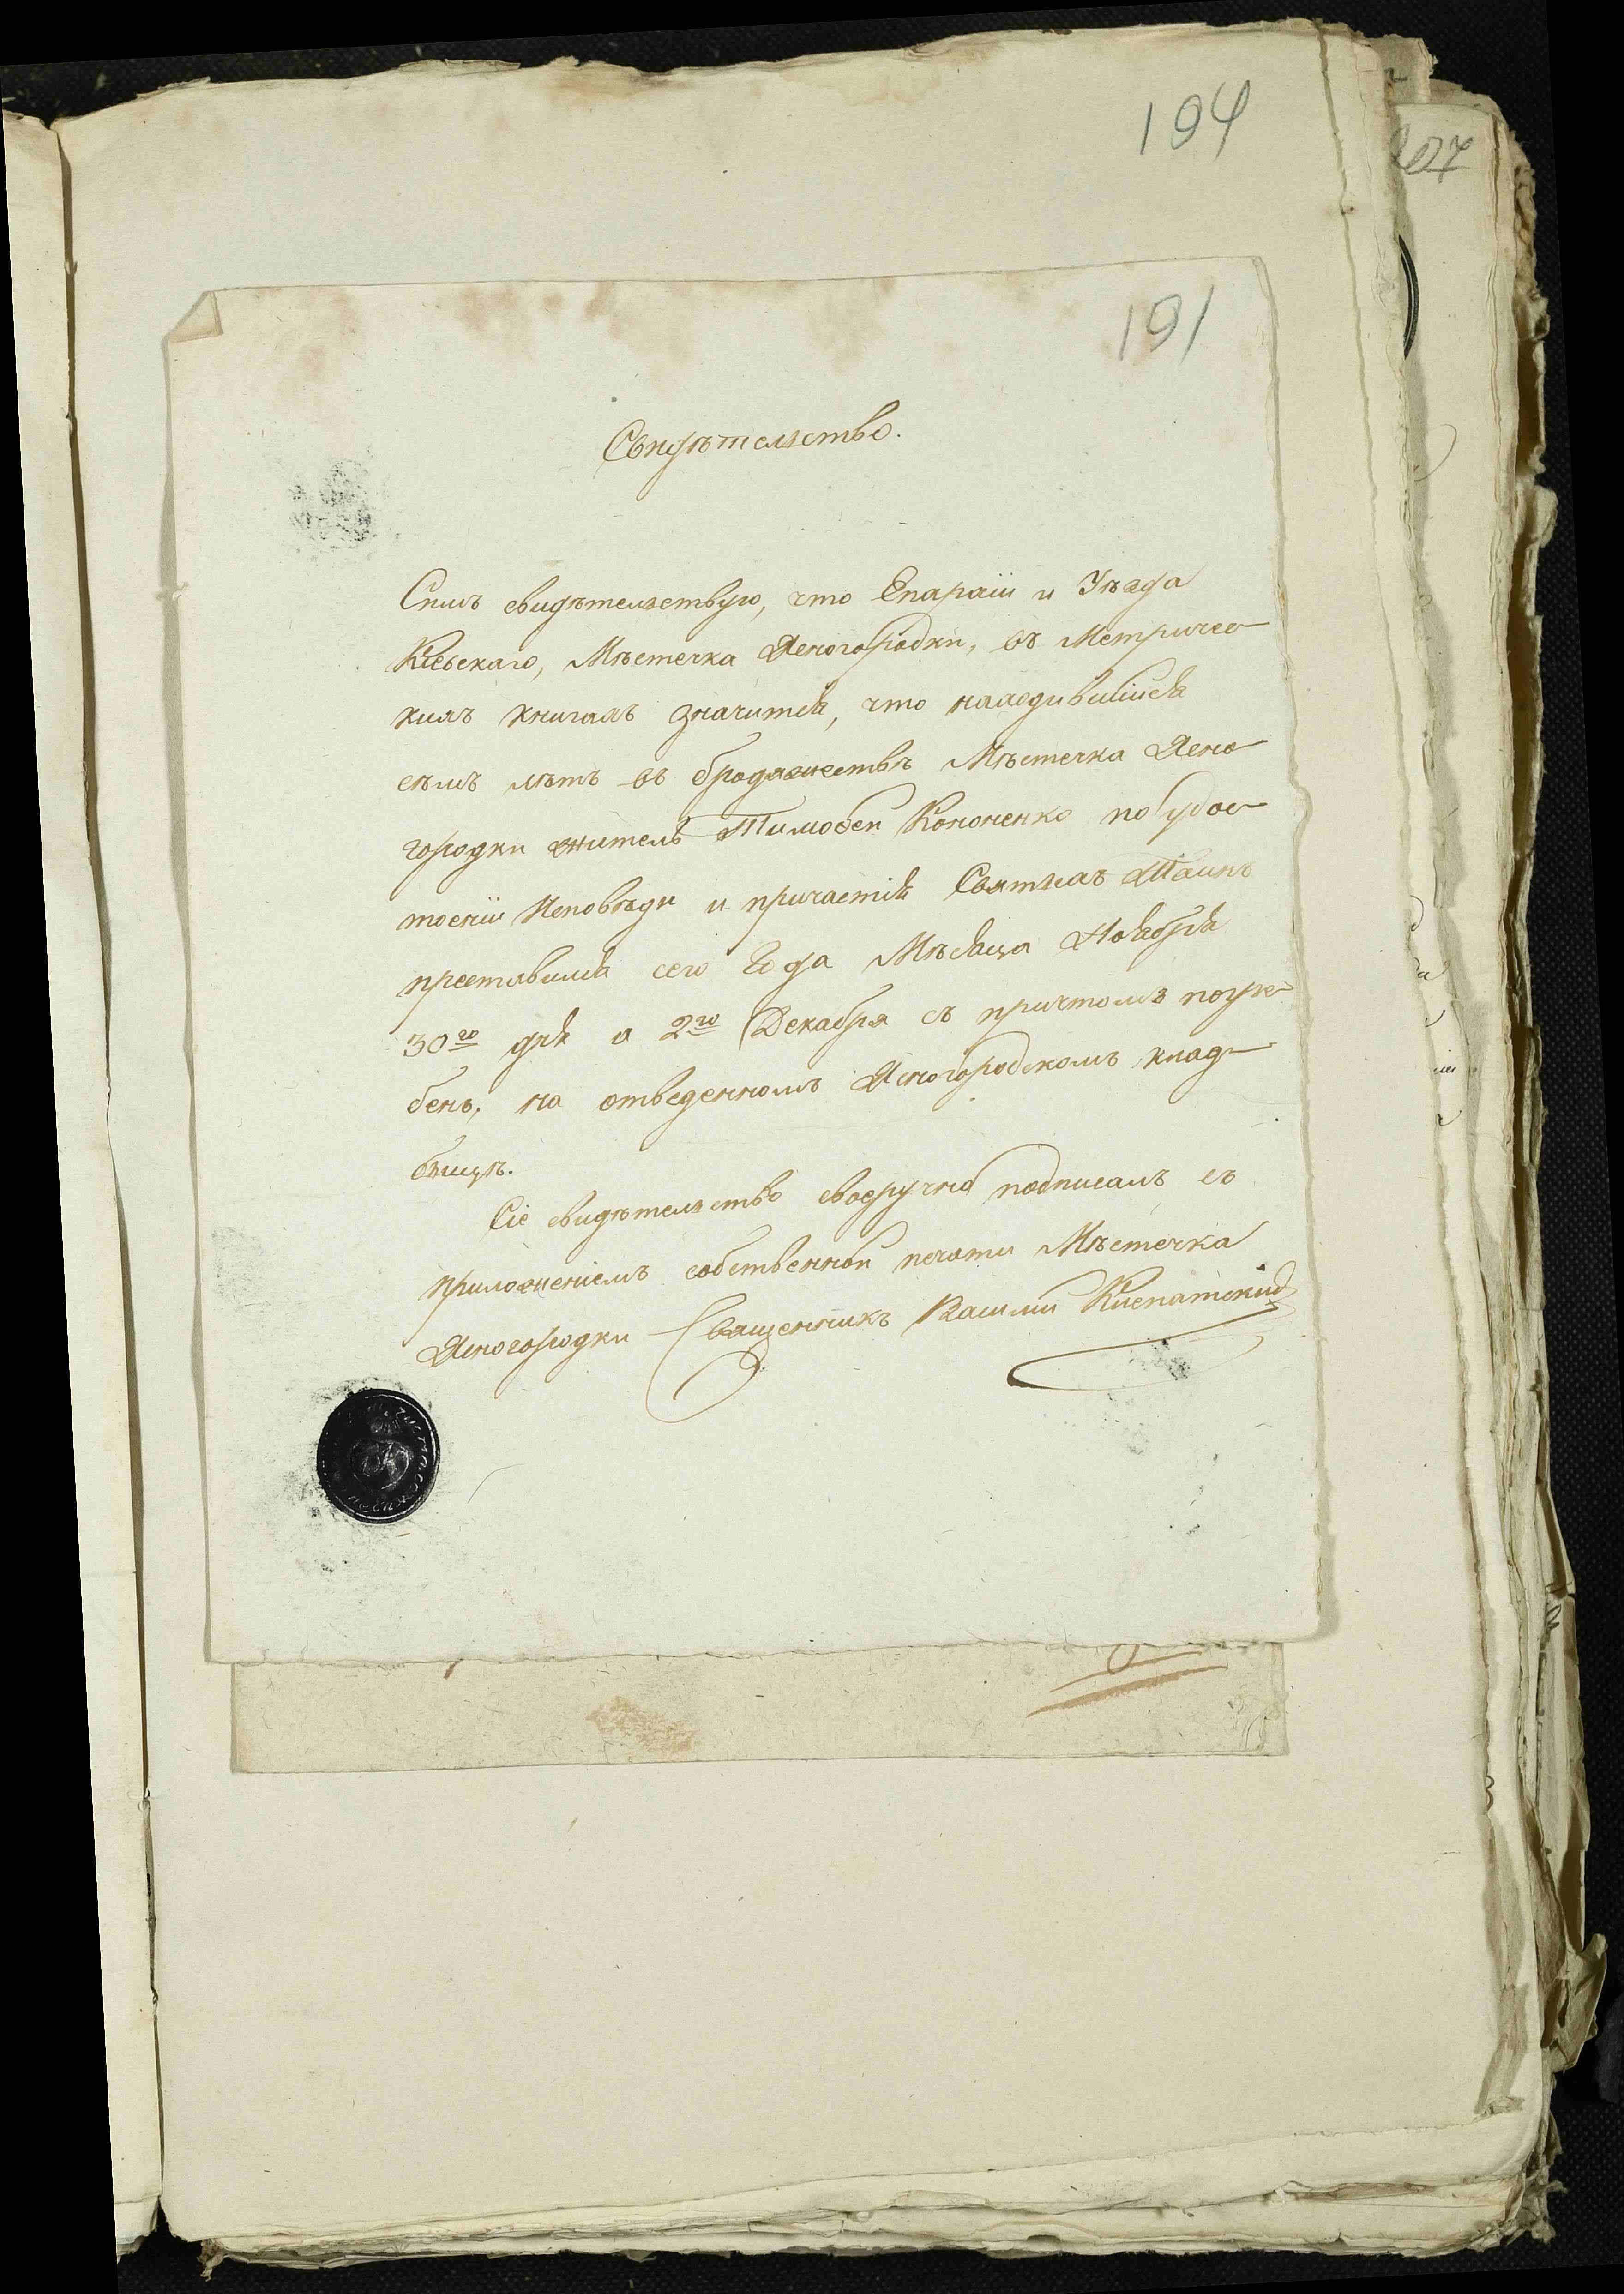 194
607
191
Свидѣтельство.
Симъ свидѣтельствую, что Епархіи и Уѣзда
Кіевскаго, Мѣстечка Ясногородки, въ Метричес-
кихъ книгахъ значится, что находившійся
сѣмъ лѣтъ въ бродяжествѣ Мѣстечка Ясно-
городки житель Тимофей Кононенко по удос-
тоеніи Исповѣди и причастія Святыхъ Таинъ
преставился сего Года Мѣсяца Ноября
30го дня а 2го Декабря съ причтомъ погре-
бенъ, на отведенномъ Ясногородскомъ клад-
бищѣ.
Сіе свидѣтельство своеручно подписалъ съ
приложеніемъ собственной печати Мѣстечка
Ясногородки Священникъ Василий